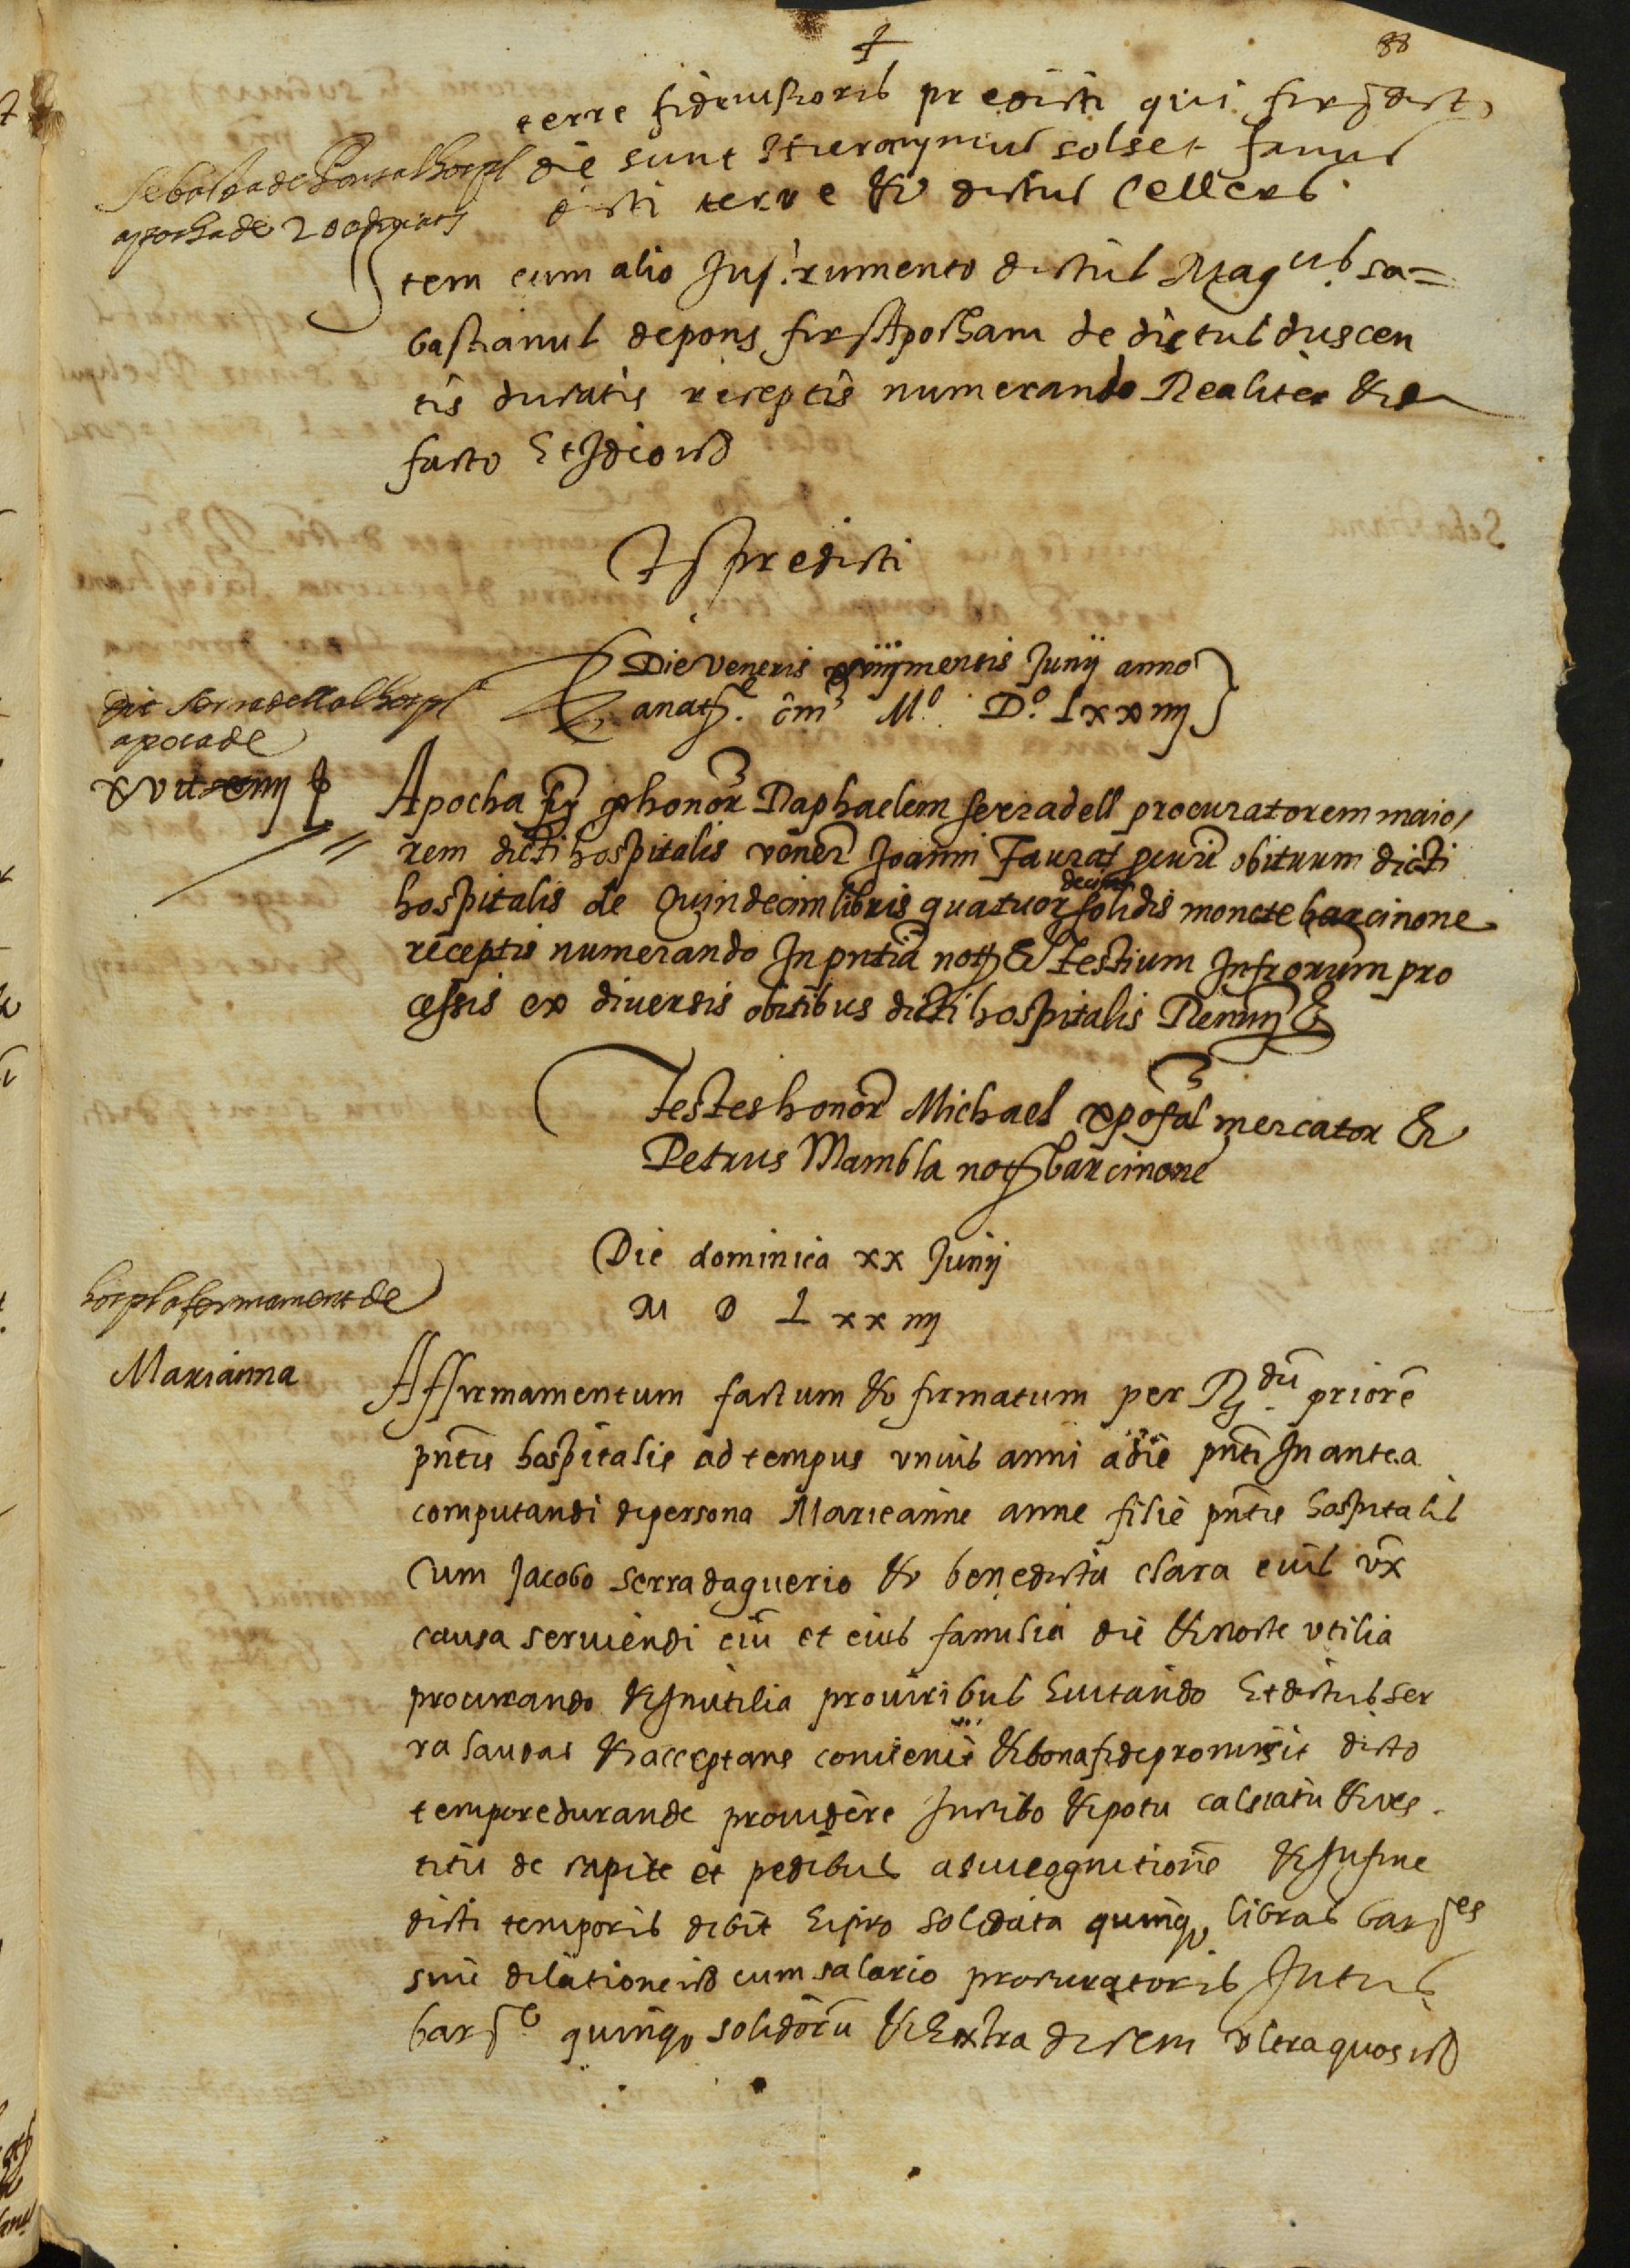 88
terre fideiussoris predicti qui firt dict
die sunt Hieronymus solset famul
dicti terre & dictus Cellers
Sebastia de Pons al hospl
apocha de 200 ducats
Item cum alio Instrumento dictus Magcus sa=
bastianus de pons firt Apocham de dictus duscen
tis ducatis receptis numerando Realiter & de
facto Et Ideo
Ts predicti
Die Veneris xviiij mensis Junij anno
anatte dni Mo. Do. Lxxiiij
serradell al hospl
apoca de
xv ll xiiij ſ
Apocha per honor Raphaelem serradell procuratorem maio,
rem dicti hospitalis vener Joanni Faurat obituum dicti
hospitalis de Quindecim libris quatuor decim solidis monete barcinone
receptis numerando In pntia not & testium Infrorum pro
cessis ex diversis obitibus dicti hospitalis Renun &
Testes honor Michael xpofal mercator &
Petrus Mambla not barcinone
Die dominica xx Junij
M D L xx iiij
hospl afermament de
Marianna
Affirmamentum factum & firmatum per Rdum priorē
pntis hospitalis ad tempus unius anni a die pnti In antea
computandi de persona Marieanne anne filie pntis hospitalis
Cum Jacobo serra daguerio & benedicta clara eius vx
causa serviendi eiu et eius familia die & nocte utilia
procurando & Inutilia pro viribus Evitando Et dictus ser
ra laudas & acceptans convenit & bona fide promisit dicto
tempore durande providere In cibo & potu calciatu & ves
titu de capite et pedibus & In fine
dicti temporis debit Ei pro solidata quinq libras bar̃es
sine dilatione cum salario procuratoris Intus
bar̃e quinq solidorū & Extra decem ultra quos